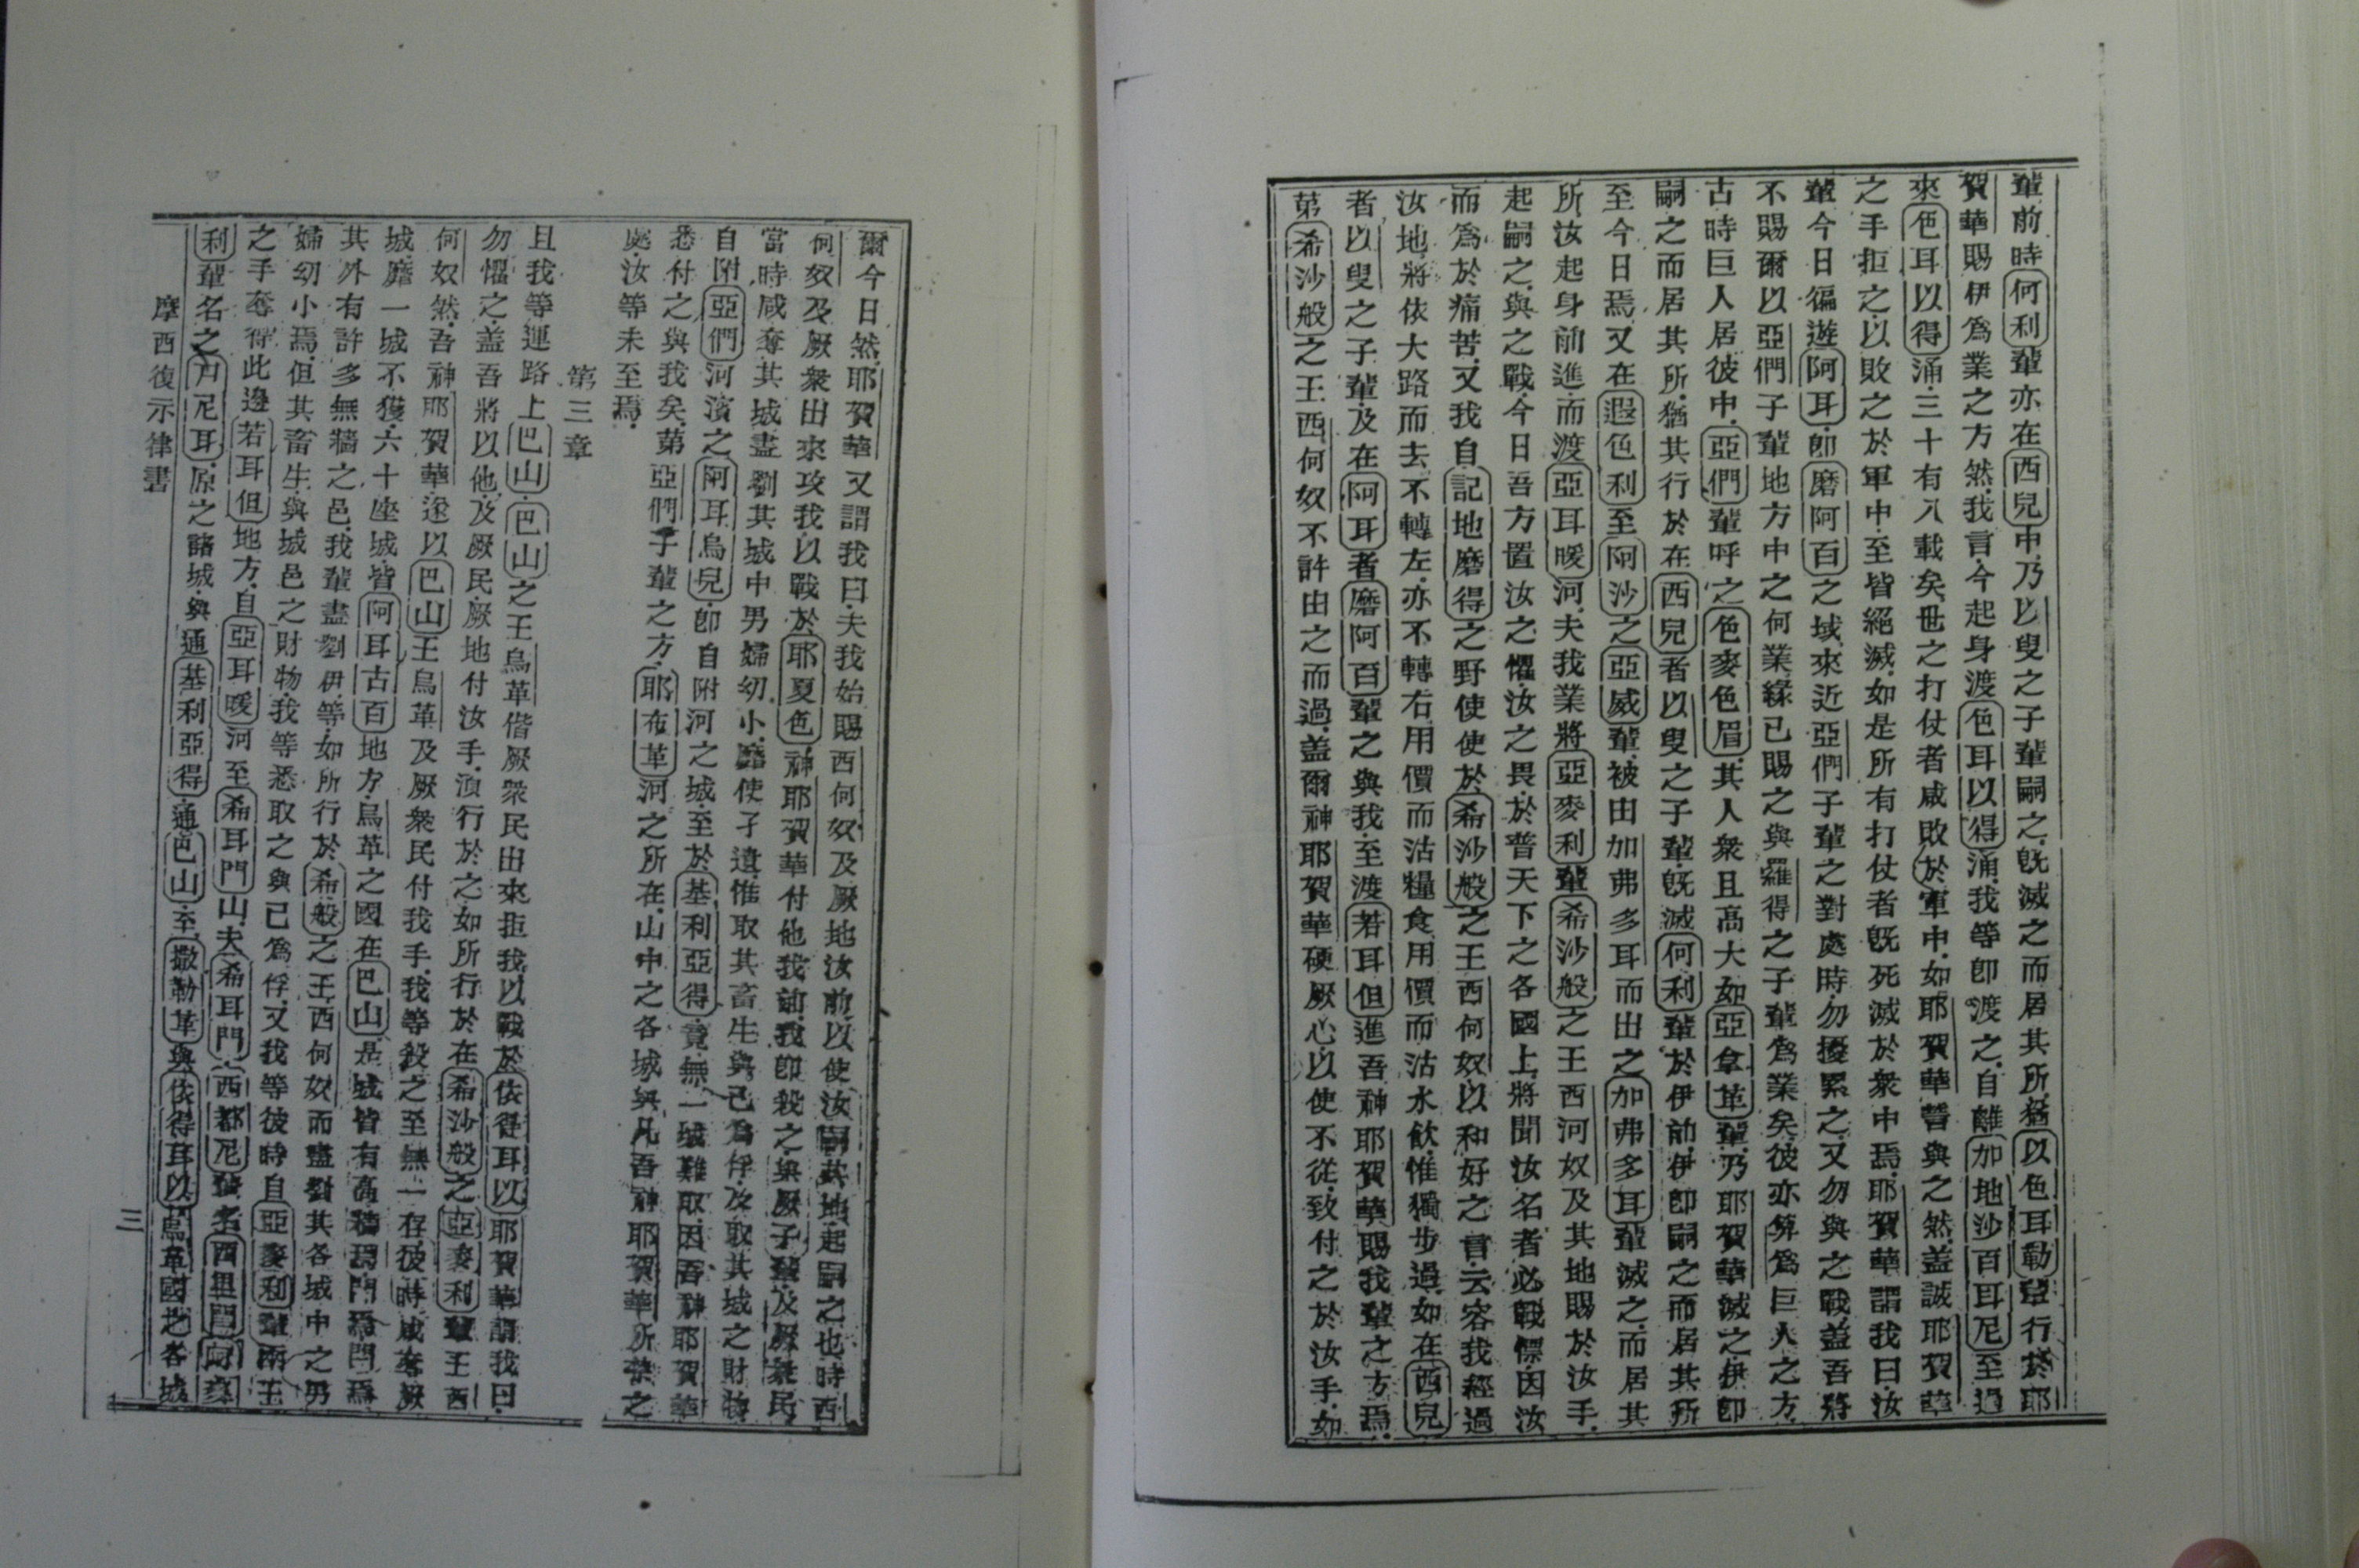 輩前時何利輩亦在西兒中乃以叟之子輩嗣之旣滅之而居其所猶以色耳勒輩行於耶
賀華賜伊爲業之方然我言今起身渡色耳以得涌我等卽渡之自離加地沙百耳尼至過
來色耳以得涌三十有八載矣世之打仗者咸敗於軍中如耶賀華誓與之然蓋誠耶賀華
之手拒之以敗之於軍中至皆絕滅如是所有打仗者旣死滅於衆中焉耶賀華謂我曰汝
輩今日徧遊阿耳卽磨阿百之域來近亞們子輩之對處時勿擾累之又勿與之戰蓋吾將
不賜爾以亞們子輩地方中之何業緣已賜之與羅得之子輩爲業矣彼亦算爲巨人之方
古時巨人居彼中亞們輩呼之色麥色眉其人衆且高大如亞拿革輩乃耶賀華滅之伊卽
嗣之而居其所猶其行於在西兒者以叟之子輩旣滅何利輩於伊前伊卽嗣之而居其所
至今日焉又在遐色利至阿沙之亞威輩被由加弗多耳而出之加弗多耳輩滅之而居其
所汝起身前進而渡亞耳暖河夫我業將亞麥利輩希沙般之王西河奴及其地賜於汝手
起嗣之與之戰今日吾方置汝之懼汝之畏於普天下之各國上將聞汝名者必戰慓因汝
而爲於痛苦又我自記地磨得之野使使於希沙般之王西何奴以和好之言云容我經過
汝地將依大路而去不轉左亦不轉右用價而沽糧食用價而沽水飲惟獨步過如在西兒
者以叟之子輩及在阿耳者磨阿百輩之與我至渡若耳但進吾神耶賀華賜我輩之方焉
第希沙般之王西何奴不許由之而過蓋爾神耶賀華硬厥心以使不從致付之於汝手如
爾今日然耶賀華又謂我曰夫我始賜西何奴及厥地汝前以使汝嗣其地起嗣之也時西
何奴及厥衆出來攻我以戰於耶夏色神耶賀華付他我前我卽殺之與厥子輩及厥衆民
當時咸奪其城盡劉其城中男婦幼小靡使孑遺惟取其畜生與己爲俘及取其城之財物
自附亞們河濱之阿耳烏兒卽自附河之城至於基利亞得竟無一城難取因吾神耶賀華
悉付之與我矣第亞們子輩之方耶布革河之所在山中之各城與凡吾神耶賀華所禁之
處汝等未至焉
第三章
且我等運路上巴山巴山之王烏革偕厥衆民出來拒我以戰於依得耳以耶賀華謂我曰
勿懼之蓋吾將以他及厥民厥地付汝手湏行於之如所行於在希沙般之亞麥利輩王西
何奴然吾神耶賀華遂以巴山王烏革及厥衆民付我手我等殺之至無一存彼時咸奪厥
城靡一城不獲六十座城皆阿耳古百地方烏革之國在巴山是城皆有高牆焉門焉閂焉
其外有許多無牆之邑我輩盡劉伊等如所行於希般之王西何奴而盡劉其各城中之男
婦幼小焉但其畜生與城邑之財物我等悉取之與己爲俘又我等彼時自亞麥利輩兩王
之手奪得此邊若耳但地方自亞耳暖河至希耳門山夫希耳門西都尼輩名西里門阿麥
利輩名之尸尼耳原之諸城與通基利亞得通巴山至撒勒革與依得耳以烏革國之各城
摩西復示律書
三